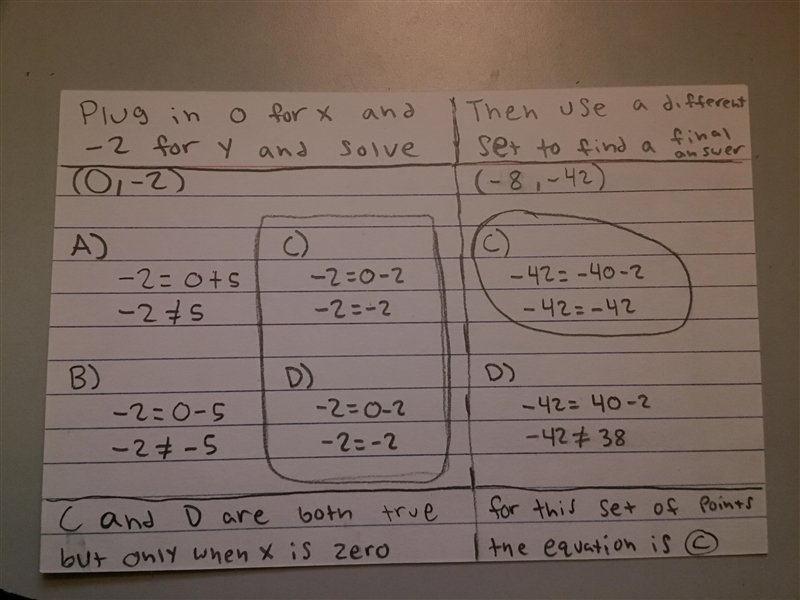 Plug in 0 for x and
-2 for y and solve
(0,-2)
A)
-2 = 0+5
-2 ≠ 5
B)
-2 = 0-5
-2 ≠ -5
C)
-2=0-2
-2=-2
D)
-2=0-2
-2=-2
C and D are both true
but only when x is zero
Then use a different
set to find a final
answer
(-8,-42)
C)
-42=-40-2
-42=-42
D)
-42=40-2
-42≠38
for this set of points
the equation is C